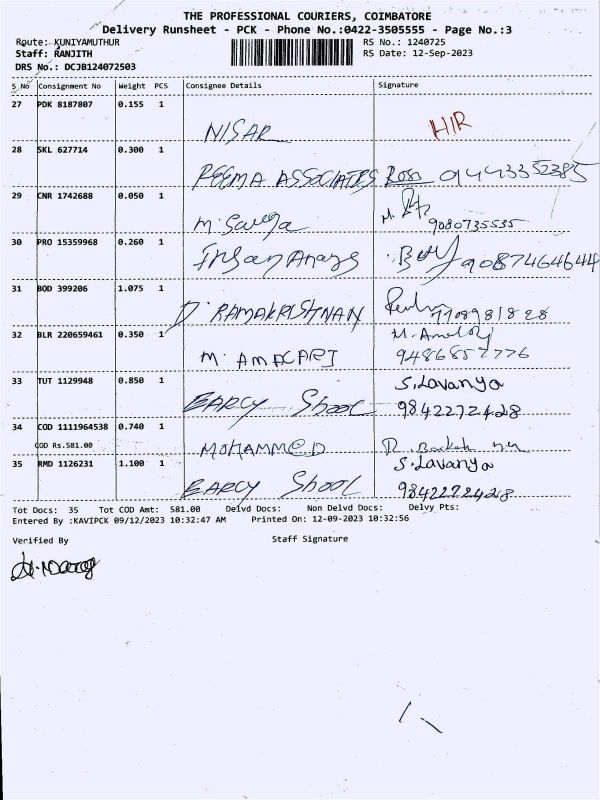 THE PROFESSIONAL COURIERS, COIMBATORE
Delivery Runsheet - PCK - Phone No.:0422-3505555 - Page No.:3
Route: KUNIYAMUTHUR RS No.: 1240725
Staff: RANJITH RS Date: 12-Sep-2023
DRS No.: DCJB124072503
S_No Consignment No Weight PCS Consignee Details Signature
27 PDK 8187807 0.155 1
NISAR HIR
28 SKL 627714 0.300 1
REEMA ASSOCIATES 01443352385
29 CNR 1742688 0.050 1
M. 9080735535
30 PRO 15359968 0.260 1
9087464644
31 BOD 399206 1.075 1
D. RAMAKRISHNAN 7708981828
32 BLR 220659461 0.350 1 M.
M. 9486852776
33 TUT 1129948 0.850 1 S. Lavanya
EARCY Shool 9842272428
34 COD 1111964538 0.740 1
COD Rs.581.00 MOHAMMED
35 RMD 1126231 1.100 1 S. Lavanya
EARCY Shool 9842272428
Tot Docs: 35 Tot COD Amt: 581.00 Delvd Docs: Non Delvd Docs: Delvy Pts:
Entered By :KAVIPCK 09/12/2023 10:32:47 AM Printed On: 12-09-2023 10:32:56
Verified By Staff Signature